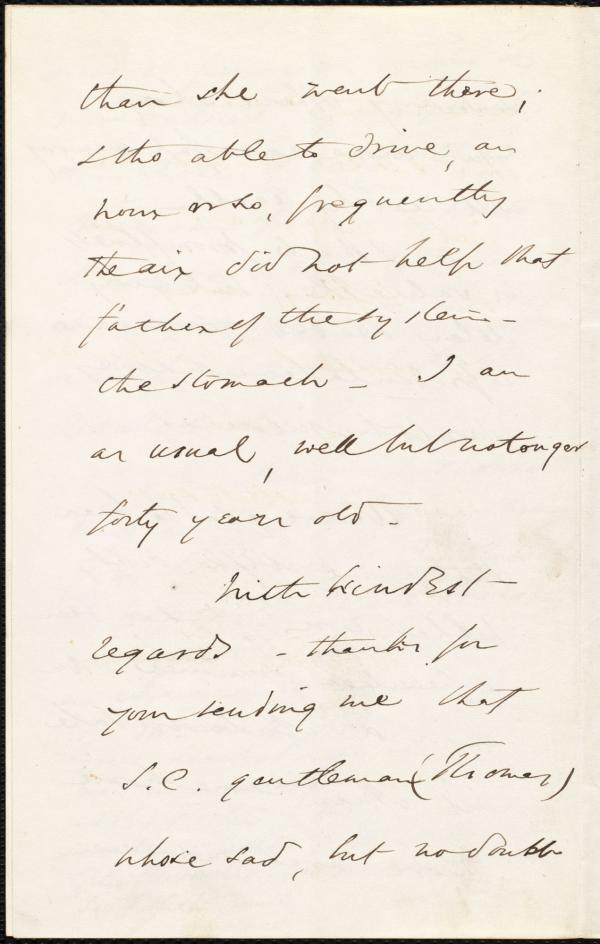 than she went there;
& tho able to drive, an
hour or so, frequently
the air did not help that
father of the system -
the stomach - I am
as usual, well but no longer
forty years old -
With kindest
regards - thanks for
your sending me that
S.C. gentleman (Thomas)
whose sad, but no doubt